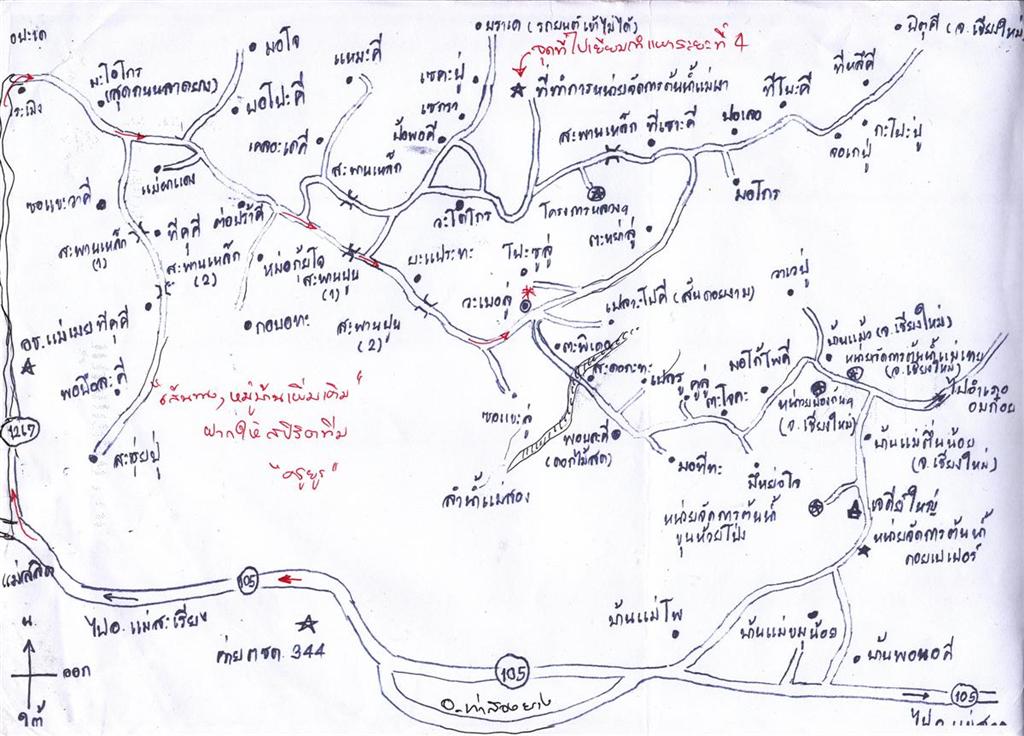 มอโจ
แหมะคี
เซคะปู่
มราเด (รถยนต์เข้าไม่ได้)
นิตุคี (จ.เชียงใหม่)
จุดที่ไปเยี่ยมสำแหาระยะที่ 4
มะโอโกร
(สุดถนนลาดยาง)
ระเมิง
มอโปะคี
เซกรา
ปังพอคี
ที่ทำการหน่วยจัดการต้นน้ำแม่เมา
ทีหลึคี
ทีโมะคี
ปอเลอ
กะโปะปู่
จอเกปู่
สะพานเหล็ก ทีเซาะคี
เคลอะเดคี
สะพานเหล็ก
แม่ผาแดง
มอโกร
ซอแขะวาคี
ทีคุคี
ต่อปร้าคี
วะโดโกร
โครงการหลวงฯ
ตะหย่าลู่
สะพานเหล็ก
(1)
สะพานเหล็ก
(2)
หม่อก้ยโจ
สะพานปูน
(1)
ยะแประทะ
โปะซูลู่
วะเบอลู่
เปลาะโปคี (สันดอยงาม)
วาเวปู่
อช.แม่เมย
ทีคุคี
กอบอทะ
สะพานปูน
(2)
ตะพิเดอ
สะดอกะทะ
เปสรู
คูลู่
มอโก้โพคี
ตะโจคะ
บ้านแม้ว (จ.เชียงใหม่)
หน่วยจัดการต้นน้ำแม่เทย
(จ.เชียงใหม่)
ไปอำเภอ
อมก๋อย
พอบือละคี
"เส้นทาง, หมู่บ้านเพิ่มเติม"
ฝากให้ สปิริตทีม
"ครูยูร"
ซอแขะลู่
พอบละคี
(ดอกไม้สด)
(จ.เชียงใหม่)
บ้านแม่ตื่นน้อย
(จ.เชียงใหม่)
1267
สะซุยปู่
ลำน้ำแม่สอง
มอทีทะ
มี้หย่อโจ
หน่วยจัดการต้นน้ำ
ขุนห้วยโป่ง
เจดีย์ใหญ่
หน่วยจัดการต้นน้ำ
ดอยเปเปอร์
แม่สลิด
105
ไป อ. แม่สะเรียง
น.
ออก
ใต้
ค่าย ตชด. 344
105
อ.ท่าสองยาง
บ้านแม่โพ
บ้านแม่ขมุน้อย
บ้านพอนอคี
105